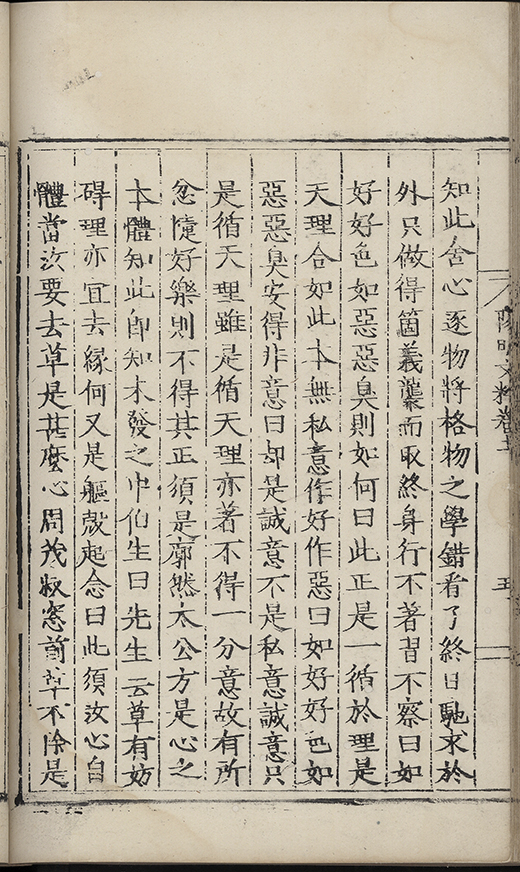 知此舍心逐物將格物之學錯看了終日馳求於
外只做得箇義襲而取終身行不著習不察曰如
好好色如惡惡臭則如何曰此正是一循於理是
天理合如此本無私意作好作惡曰如好好色如
惡惡臭安得非意曰却是誠意不是私意誠意只
是循天理雖是循天理亦著不得一分意故有所
忿懥好樂則不得其正須是廓然太公方是心之
本體知此卽知未發之中伯生曰先生云草有妨
碍理亦宜去緣何又是軀殻起念曰此須汝心自
體當汝要去草是甚麽心周茂叔窓前草不除是
陽明文粹卷五
五